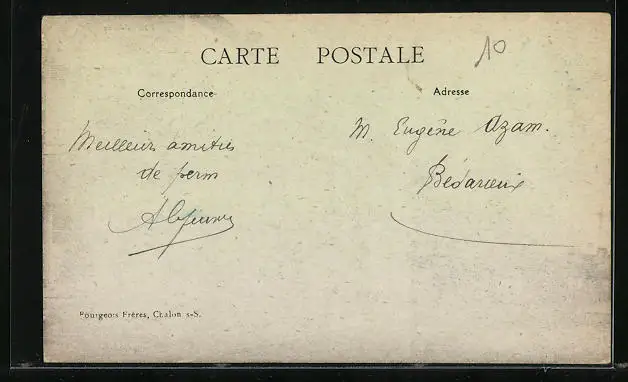 CARTE POSTALE
10
Correspondance
Adresse
Meilleurs amitiés
de perm
M. Eugène Azam.
Bédarieux
Bourgeois Frères, Chalon s-S.